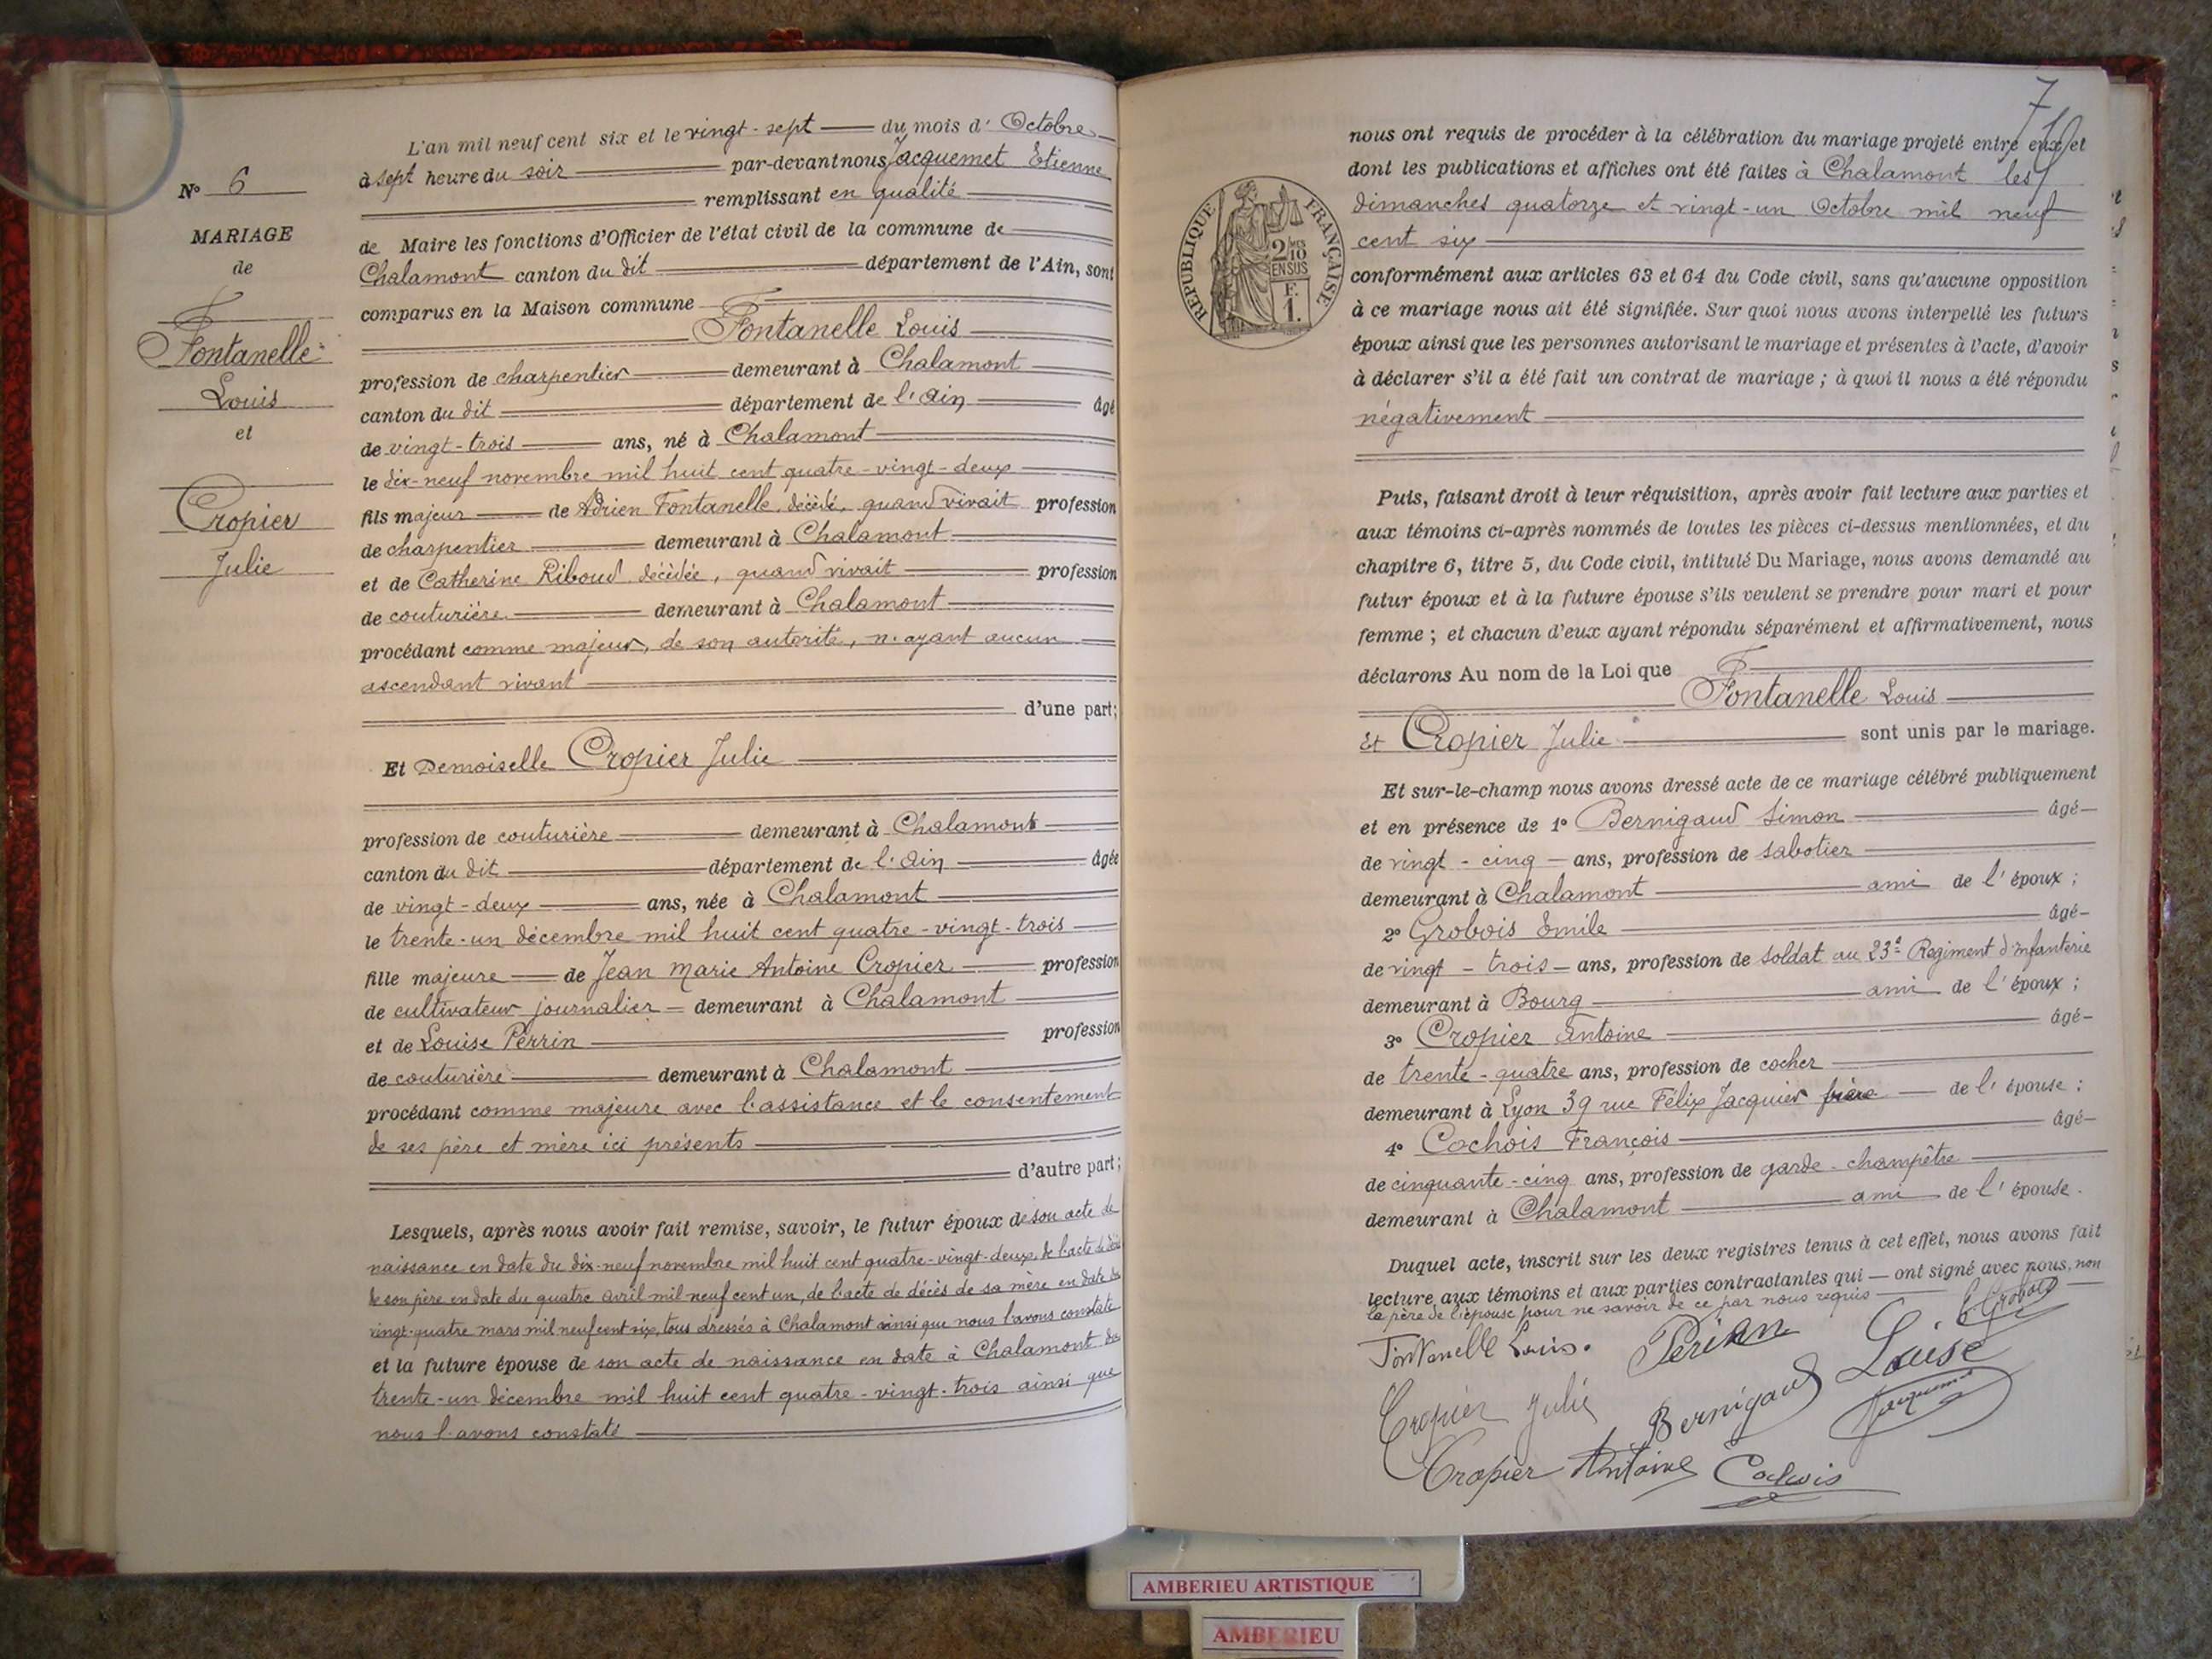 N° 6
MARIAGE
de
Fontanelle
Louis
et
Cropier
Julie
L'an mil neuf cent six et le vingt-sept du mois d' Octobre
à sept heure du soir par-devant nous Jacquemet Etienne
remplissant en qualité
de Maire les fonctions d'Officier de l'état civil de la commune de
Chalamont canton du dit département de l'Ain, sont
comparus en la Maison commune
Fontanelle Louis
profession de charpentier demeurant à Chalamont
canton du dit département de l'Ain âgé
de vingt-trois ans, né à Chalamont
le dix-neuf novembre mil huit cent quatre-vingt-deux
fils majeur de Adrien Fontanelle, décédé, quand vivait profession
de charpentier demeurant à Chalamont
et de Catherine Riboud décédée, quand vivait profession
de couturière demeurant à Chalamont
procédant comme majeur, de son autorité, n'ayant aucun
ascendant vivant
d'une part;
Et Demoiselle Cropier Julie
profession de couturière demeurant à Chalamont
canton du dit département de l'Ain âgée
de vingt-deux ans, née à Chalamont
le trente-un décembre mil huit cent quatre-vingt-trois
fille majeure de Jean Marie Antoine Cropier profession
de cultivateur journalier demeurant à Chalamont
et de Louise Perrin profession
de couturière demeurant à Chalamont
procédant comme majeure avec l'assistance et le consentement
de ses père et mère ici présents
d'autre part;
Lesquels, après nous avoir fait remise, savoir, le futur époux de son acte de
naissance en date du dix-neuf novembre mil huit cent quatre-vingt-deux, de l'acte de décès
de son père en date du quatre avril mil neuf cent un, de l'acte de décès de sa mère en date du
vingt-quatre mars mil neuf cent six, tous dressés à Chalamont ainsi que nous l'avons constaté
et la future épouse de son acte de naissance en date à Chalamont du
trente-un décembre mil huit cent quatre-vingt-trois ainsi que
nous l'avons constaté
7
nous ont requis de procéder à la célébration du mariage projeté entre eux et
dont les publications et affiches ont été faites à Chalamont les
dimanches quatorze et vingt-un Octobre mil neuf
cent six
RÉPUBLIQUE FRANÇAISE
2/10 MES
EN SUS
F.
1.
conformément aux articles 63 et 64 du Code civil, sans qu'aucune opposition
à ce mariage nous ait été signifiée. Sur quoi nous avons interpellé les futurs
époux ainsi que les personnes autorisant le mariage et présentes à l'acte, d'avoir
à déclarer s'il a été fait un contrat de mariage ; à quoi il nous a été répondu
négativement
Puis, faisant droit à leur réquisition, après avoir fait lecture aux parties et
aux témoins ci-après nommés de toutes les pièces ci-dessus mentionnées, et du
chapitre 6, titre 5, du Code civil, intitulé Du Mariage, nous avons demandé au
futur époux et à la future épouse s'ils veulent se prendre pour mari et pour
femme ; et chacun d'eux ayant répondu séparément et affirmativement, nous
déclarons Au nom de la Loi que
Fontanelle Louis
Et Cropier Julie sont unis par le mariage.
Et sur-le-champ nous avons dressé acte de ce mariage célébré publiquement
et en présence de 1° Bernigaud Simon âgé
de vingt-cinq ans, profession de sabotier
demeurant à Chalamont ami de l'époux ;
2° Grobois Emile âgé
de vingt-trois ans, profession de soldat au 23e Regiment d'Infanterie
demeurant à Bourg ami de l'époux ;
3° Cropier Antoine âgé
de trente-quatre ans, profession de cocher
demeurant à Lyon 39 rue Félix Jacquier frère de l'épouse ;
4° Cochois François âgé
de cinquante-cinq ans, profession de garde-champêtre
demeurant à Chalamont ami de l'épouse.
Duquel acte, inscrit sur les deux registres tenus à cet effet, nous avons fait
lecture aux témoins et aux parties contractantes qui ont signé avec nous, non
le père de l'épouse pour ne savoir de ce par nous requis
E Grobois
Fontanelle Louis. Périnn Louise
Cropier Julie Bernigaud Jacquemet
Cropier Antoine Cochois
AMBERIEU ARTISTIQUE
AMBERIEU